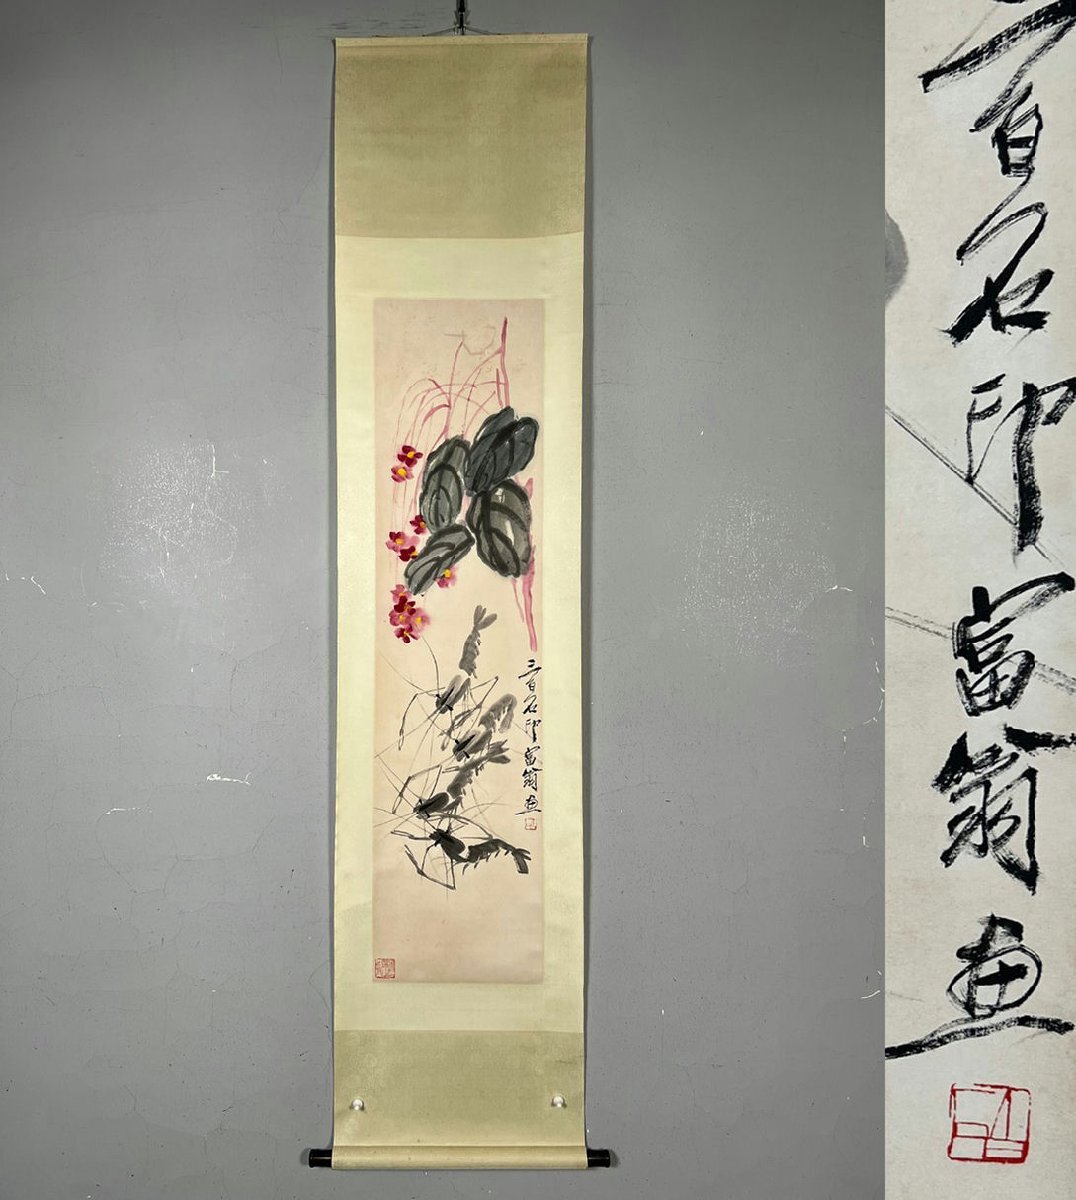 三百石印富翁画
百石印富翁画